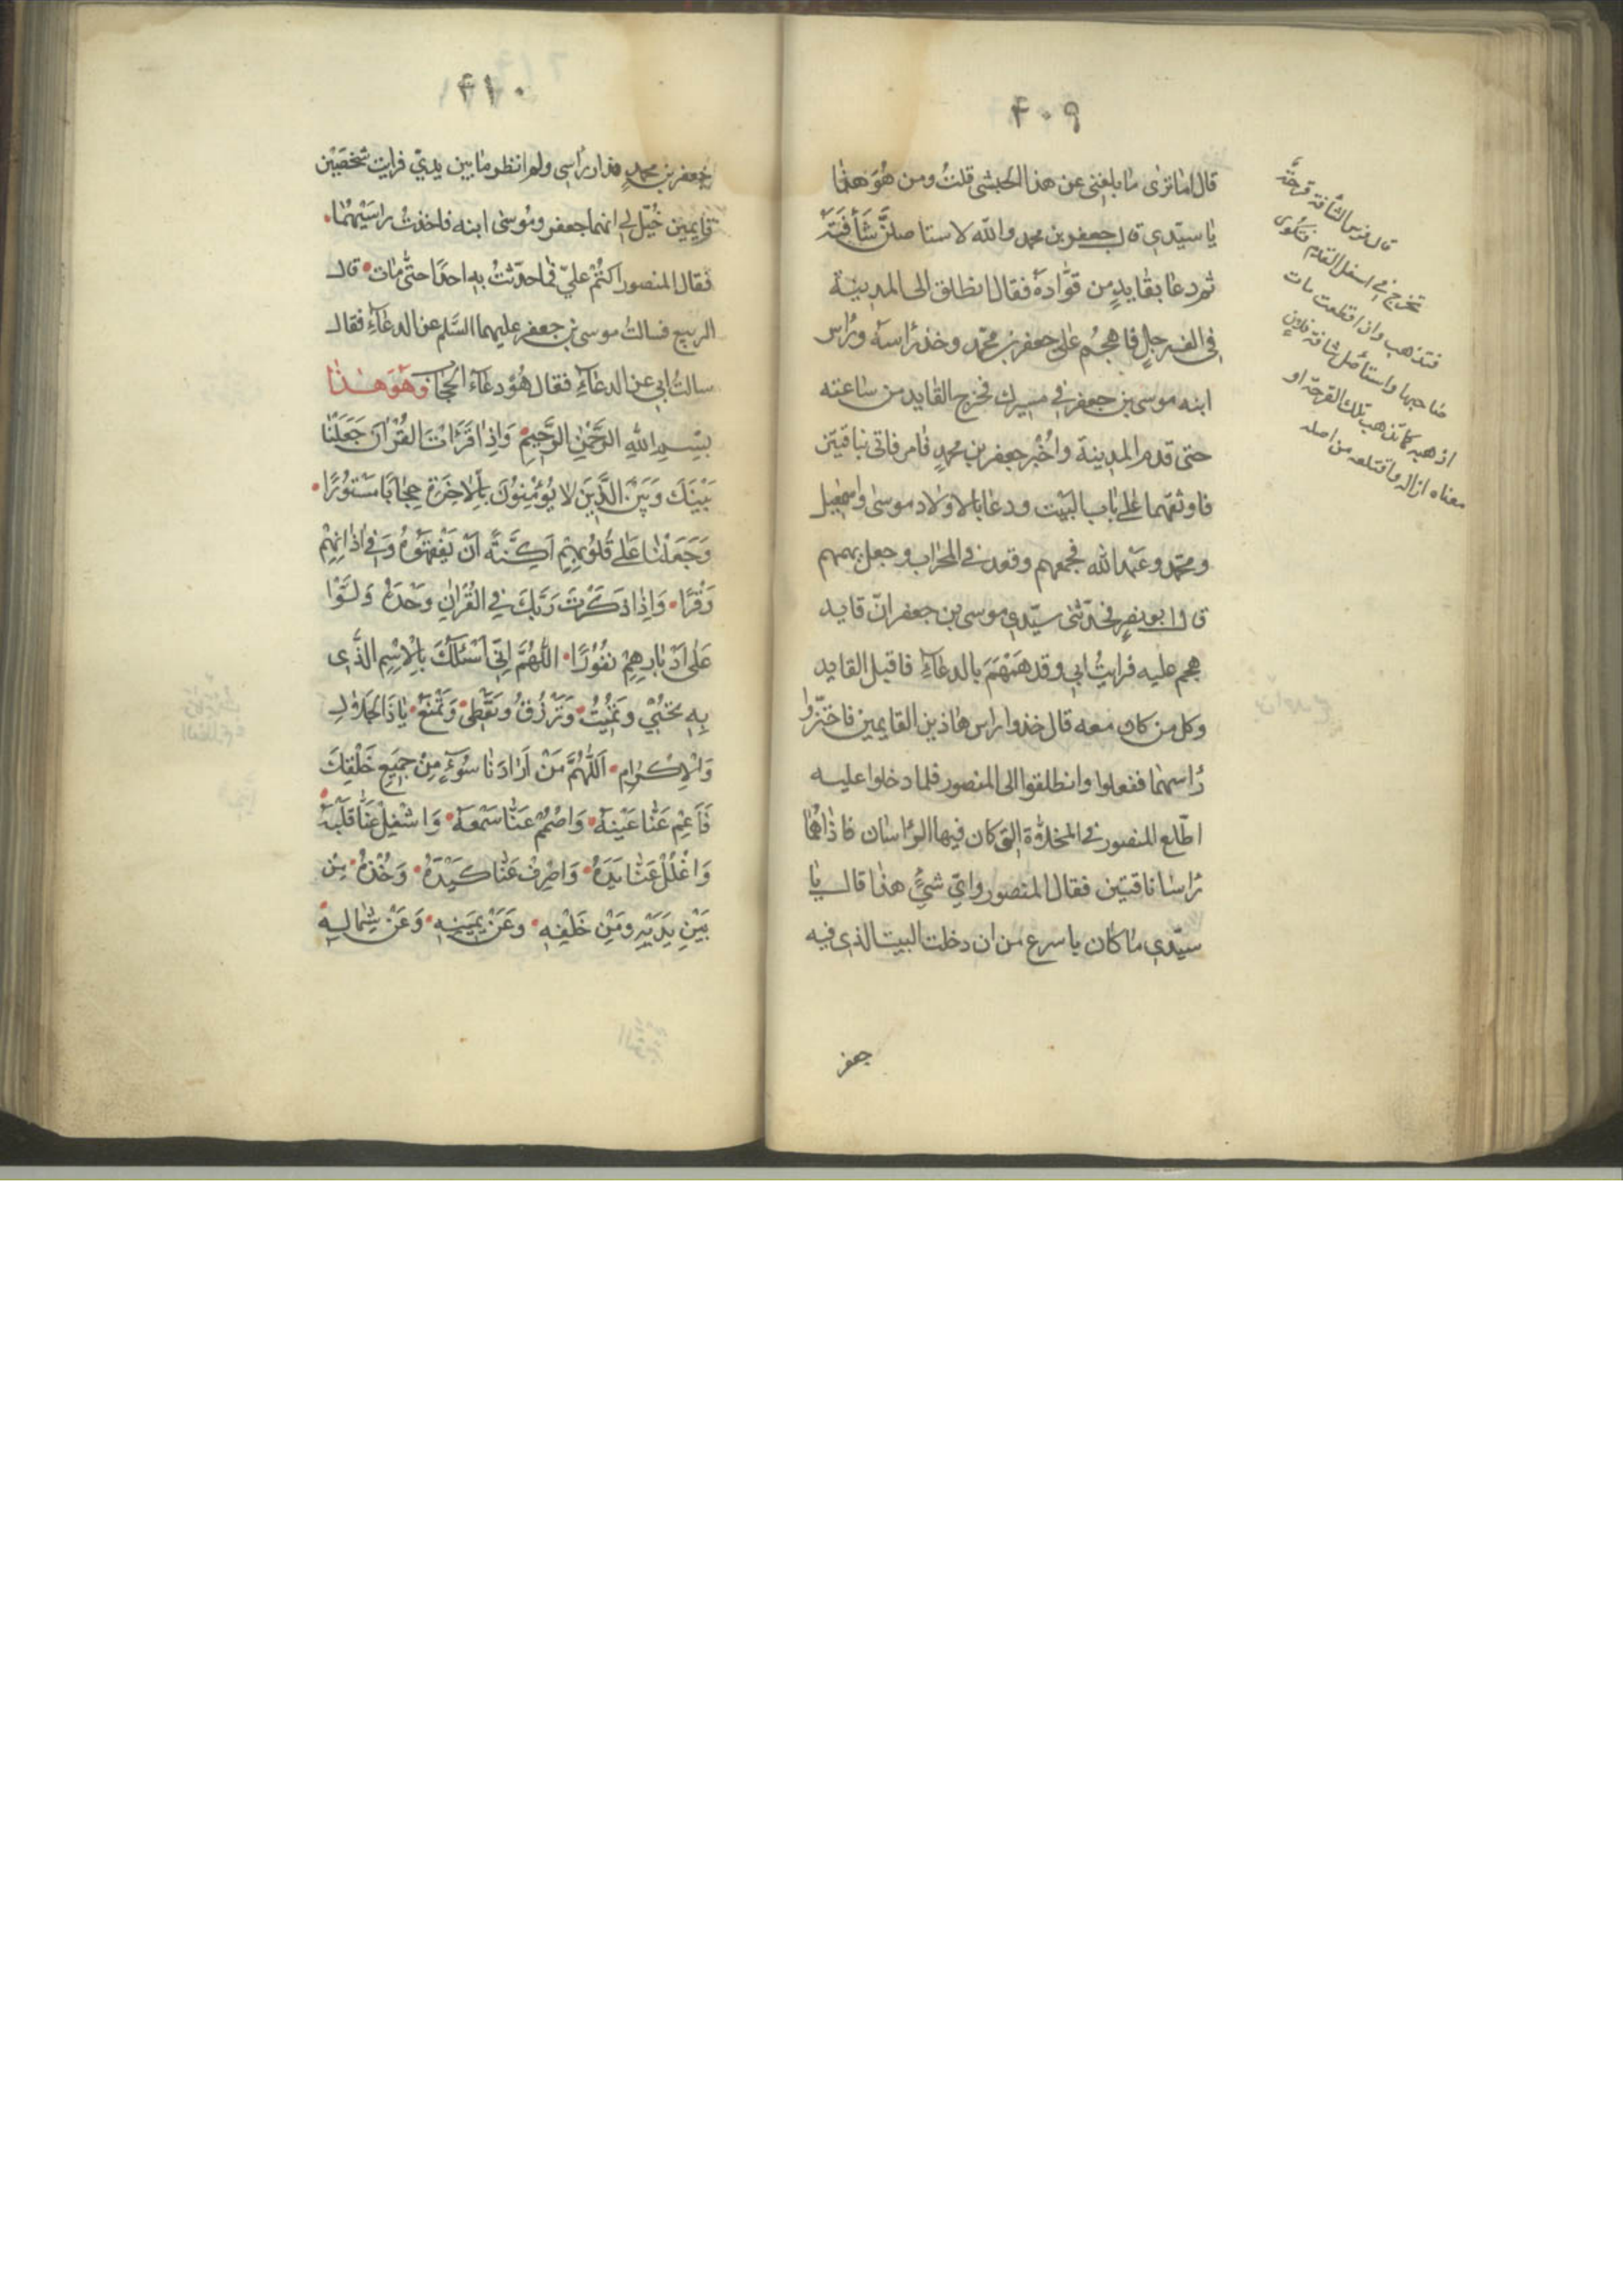 ٤٠٩
قال اما ترى ما بلغنى عن هذا الحبشى قلتُ ومن هُوَ هذا
يا سيّدى قال جعفر بن محمد والله لاستاصلنَّ شَأفَتَهُ
ثم دعا بقايدٍ من قوّاده فقال انطلق الى المدينة
فى الف رجلٍ فاهجُم على جعفر بن محمّد وخذ رأسه وراس
ابنه موسى بن جعفر فى مسيرك فخرج القايد من ساعته
حتى قدم المدينة واُخْبِر جعفر بن محمدٍ فامر فاتى بناقتين
فاوثقهما على باب البيت ودعا بالاولاد موسى واسمعيل
ومحمّد وعبد الله فجمعهم وقعد فى المحراب وجعل يهمهم
قال ابو بصير فحدّثنى سيّدى موسى بن جعفر انّ قايد
هجم عليه فرايتُ ابى وقد هَمْهَمَ بالدعآءِ فاقبل القايد
وكل من كان معه قال خذوا راس هاذين القايمين فاجتزّوا
رأسهما ففعلوا وانطلقوا الى المنصور فلما دخلوا عليه
اطّلع المنصور فى المخلاة التى كان فيها الرأسان فاذا هُما
رأسا ناقتين فقال المنصور واىّ شىءٍ هذا قال يا
سيّدى ما كان باسرع من ان دخلت البيت الذى فيه
جعفر
قال فى س الشأفة قرحة
تخرج فى اسفل القدم فتكوى
فتذهب واذا قطعت مات
صاحبها واستأصل شافة فلانٍ
اذهبه كما تذهب تلك القرحة او
معناه ازاله واقتلعه من اصله
٤١٠
جعفر بن محمدٍ فدار رأسى ولم انظر ما بين يدىّ فرايت شخصَيْن
قايمين خُيّل لى انهما جعفر ومُوسى ابنه فاخذتُ راسَيْهُما
فقال المنصور اكتُمْ علىّ فما حدّثتُ به احدًا حتّى مات قال
الربيع فسالتُ موسى بن جعفر عليهما السَّلم عن الدعآءِ فقال
سالتُ ابى عن الدعآءِ فقال هُوَ دعآء الحجاب وَهُوَ هذا
بِسْمِ اللهِ الرَّحْمٰنِ الرَّحِيمِ وَاِذا قَرَاْتَ الْقُرْآنَ جَعَلْنا
بَيْنَكَ وَبَيْنَ الَّذِينَ لا يُؤْمِنُونَ بِالاٰخِرَةِ حِجابًا مَسْتُورًا
وَجَعَلْنا عَلى قُلُوبِهِمْ اَكِنَّةً اَنْ يَفْقَهُوهُ وَفى اٰذانِهِمْ
وَقْرًا وَاِذا ذَكَرْتَ رَبَّكَ فِى الْقُرْاٰنِ وَحْدَهُ وَلَّوْا
عَلى اَدْبارِهِمْ نُفُورًا اللّٰهُمَّ اِنّى اَسْئَلُكَ بِالاِسْمِ الَّذى
بِهِ تُحْيى وَتُمِيتُ وَتَرْزُقُ وَتُعْطى وَتَمْنَعُ يا ذَا الْجَلالِ
وَالْاِكْرامِ اَللّٰهُمَّ مَنْ اَرادَنا سُوٓءٍ مِنْ جَميعِ خَلْقِكَ
فَاَعْمِ عَنّا عَيْنَهُ وَاصْمُمْ عَنّا سَمْعَهُ وَاشْغِلْ عَنّا قَلْبَهُ
وَاغْلُلْ عَنّا يَدَهُ وَاصْرِفْ عَنّا كَيْدَهُ وَخُذْهُ مِنْ
بَيْنِ يَدَيْهِ وَمِنْ خَلْفِهِ وَعَنْ يَمينِهِ وَعَنْ شِمالِهِ